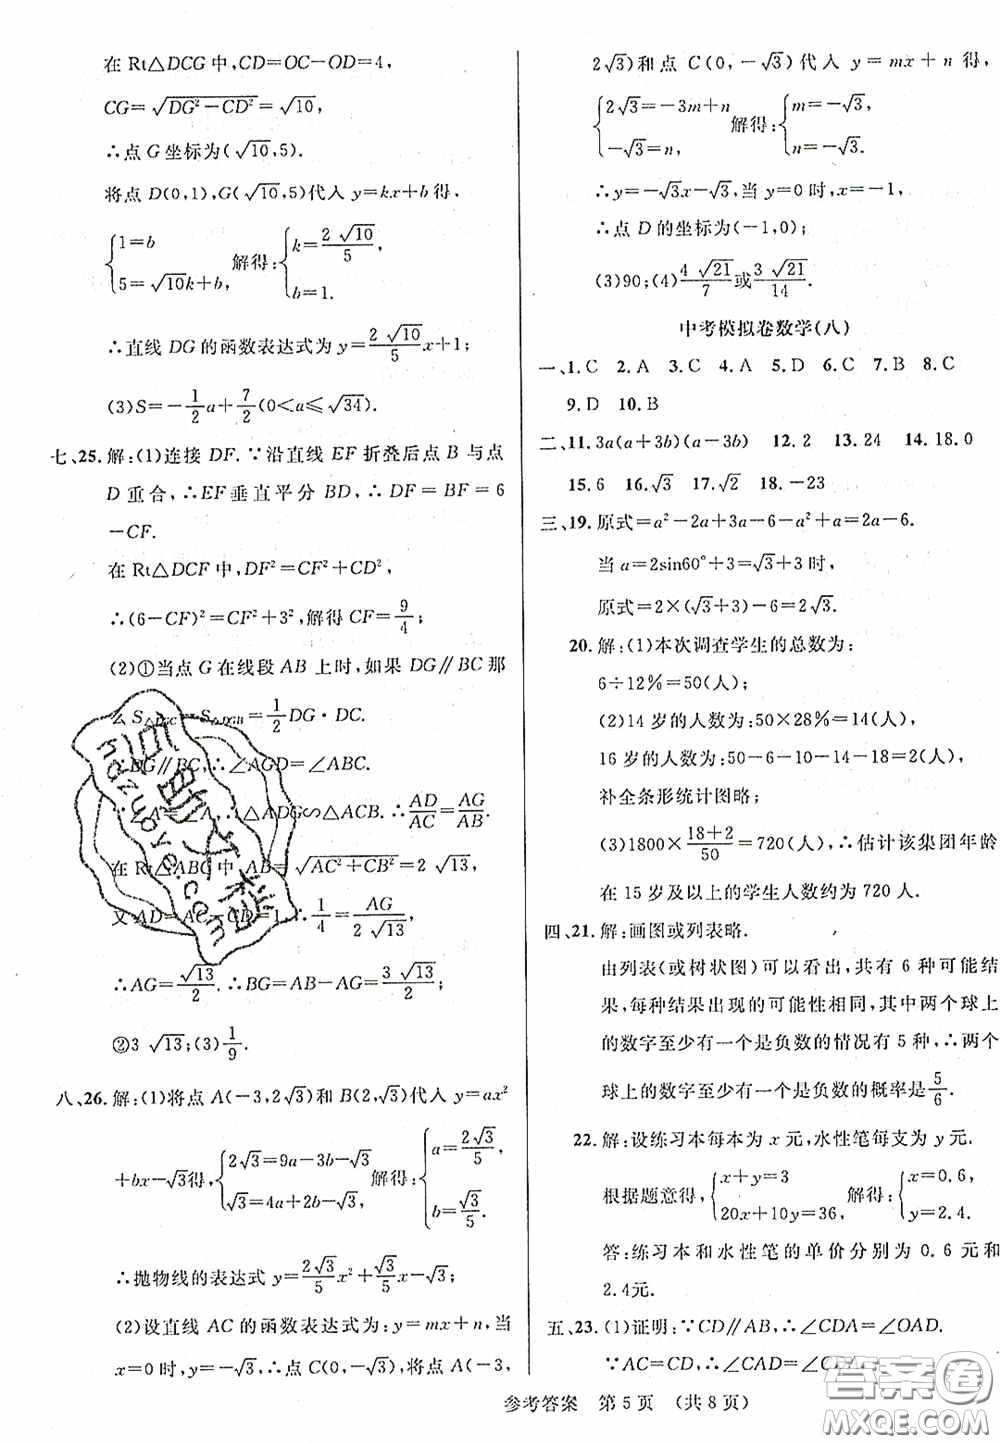 在 Rt△DCG 中,CD=OC-OD=4,
CG=√(DG²-CD²)=√10,
∴点 G 坐标为(√10,5).
将点 D(0,1),G(√10,5)代入 y=kx+b 得,
{1=b 5=√10k+b 解得:{k=2√10/5, b=1.
∴直线 DG 的函数表达式为 y=2√10/5 x+1;
(3)S=-1/2 a+7/2(0<a≤√34).
七、25. 解:(1)连接 DF. ∵沿直线 EF 折叠后点 B 与点
D 重合,∴EF 垂直平分 BD,∴DF=BF=6
-CF.
在 Rt△DCF 中,DF²=CF²+CD²,
∴(6-CF)²=CF²+3²,解得 CF=9/4;
(2)①当点 G 在线段 AB 上时,如果 DG∥BC 那
么 S△DGC=S△DGB=1/2 DG·DC.
∵DG∥BC,∴∠AGD=∠ABC.
∵∠A=∠A,∴△ADG∽△ACB. ∴AD/AC=AG/AB.
在 Rt△ABC 中,AB=√(AC²+CB²)=2√13,
又 AD=AC-CD=1,∴1/4=AG/2√13,
∴AG=√13/2. ∴BG=AB-AG=3√13/2;
②3√13;(3)1/9.
八、26. 解:(1)将点 A(-3,2√3)和 B(2,√3)代入 y=ax²
+bx-√3得,{2√3=9a-3b-√3 √3=4a+2b-√3 解得:{a=2√3/5, b=√3/5.
∴抛物线的表达式 y=2√3/5 x²+√3/5 x-√3;
(2)设直线 AC 的函数表达式为:y=mx+n,当
x=0 时,y=-√3,∴点 C(0,-√3),将点 A(-3,
2√3)和点 C(0,-√3)代入 y=mx+n 得,
{2√3=-3m+n -√3=n, 解得:{m=-√3, n=-√3.
∴y=-√3x-√3,当 y=0 时,x=-1,
∴点 D 的坐标为(-1,0);
(3)90;(4)4√21/7或3√21/14.
中考模拟卷数学(八)
一、1. C 2. A 3. A 4. A 5. D 6. C 7. B 8. C
9. D 10. B
二、11. 3a(a+3b)(a-3b) 12. 2 13. 24 14. 18.0
15. 6 16. √3 17. √2 18. -23
三、19. 原式=a²-2a+3a-6-a²+a=2a-6.
当 a=2sin60°+3=√3+3时,
原式=2×(√3+3)-6=2√3.
20. 解:(1)本次调查学生的总数为:
6÷12%=50(人);
(2)14 岁的人数为:50×28%=14(人),
16 岁的人数为:50-6-10-14-18=2(人),
补全条形统计图略;
(3)1800×(18+2)/50=720(人),∴估计该集团年龄
在 15 岁及以上的学生人数约为 720 人.
四、21. 解:画图或列表略.
由列表(或树状图)可以看出,共有 6 种可能结
果,每种结果出现的可能性相同,其中两个球上
的数字至少有一个是负数的情况有 5 种,∴两个
球上的数字至少有一个是负数的概率是5/6.
22. 解:设练习本每本为 x 元,水性笔每支为 y 元.
根据题意得,{x+y=3 20x+10y=36, 解得:{x=0.6, y=2.4.
答:练习本和水性笔的单价分别为 0.6 元和
2.4元.
五、23. (1)证明:∵CD∥AB,∴∠CDA=∠OAD.
∵AC=CD,∴∠CAD=∠CDA.
参考答案 第 5 页 (共 8 页)
答案圈
MXQE.COM